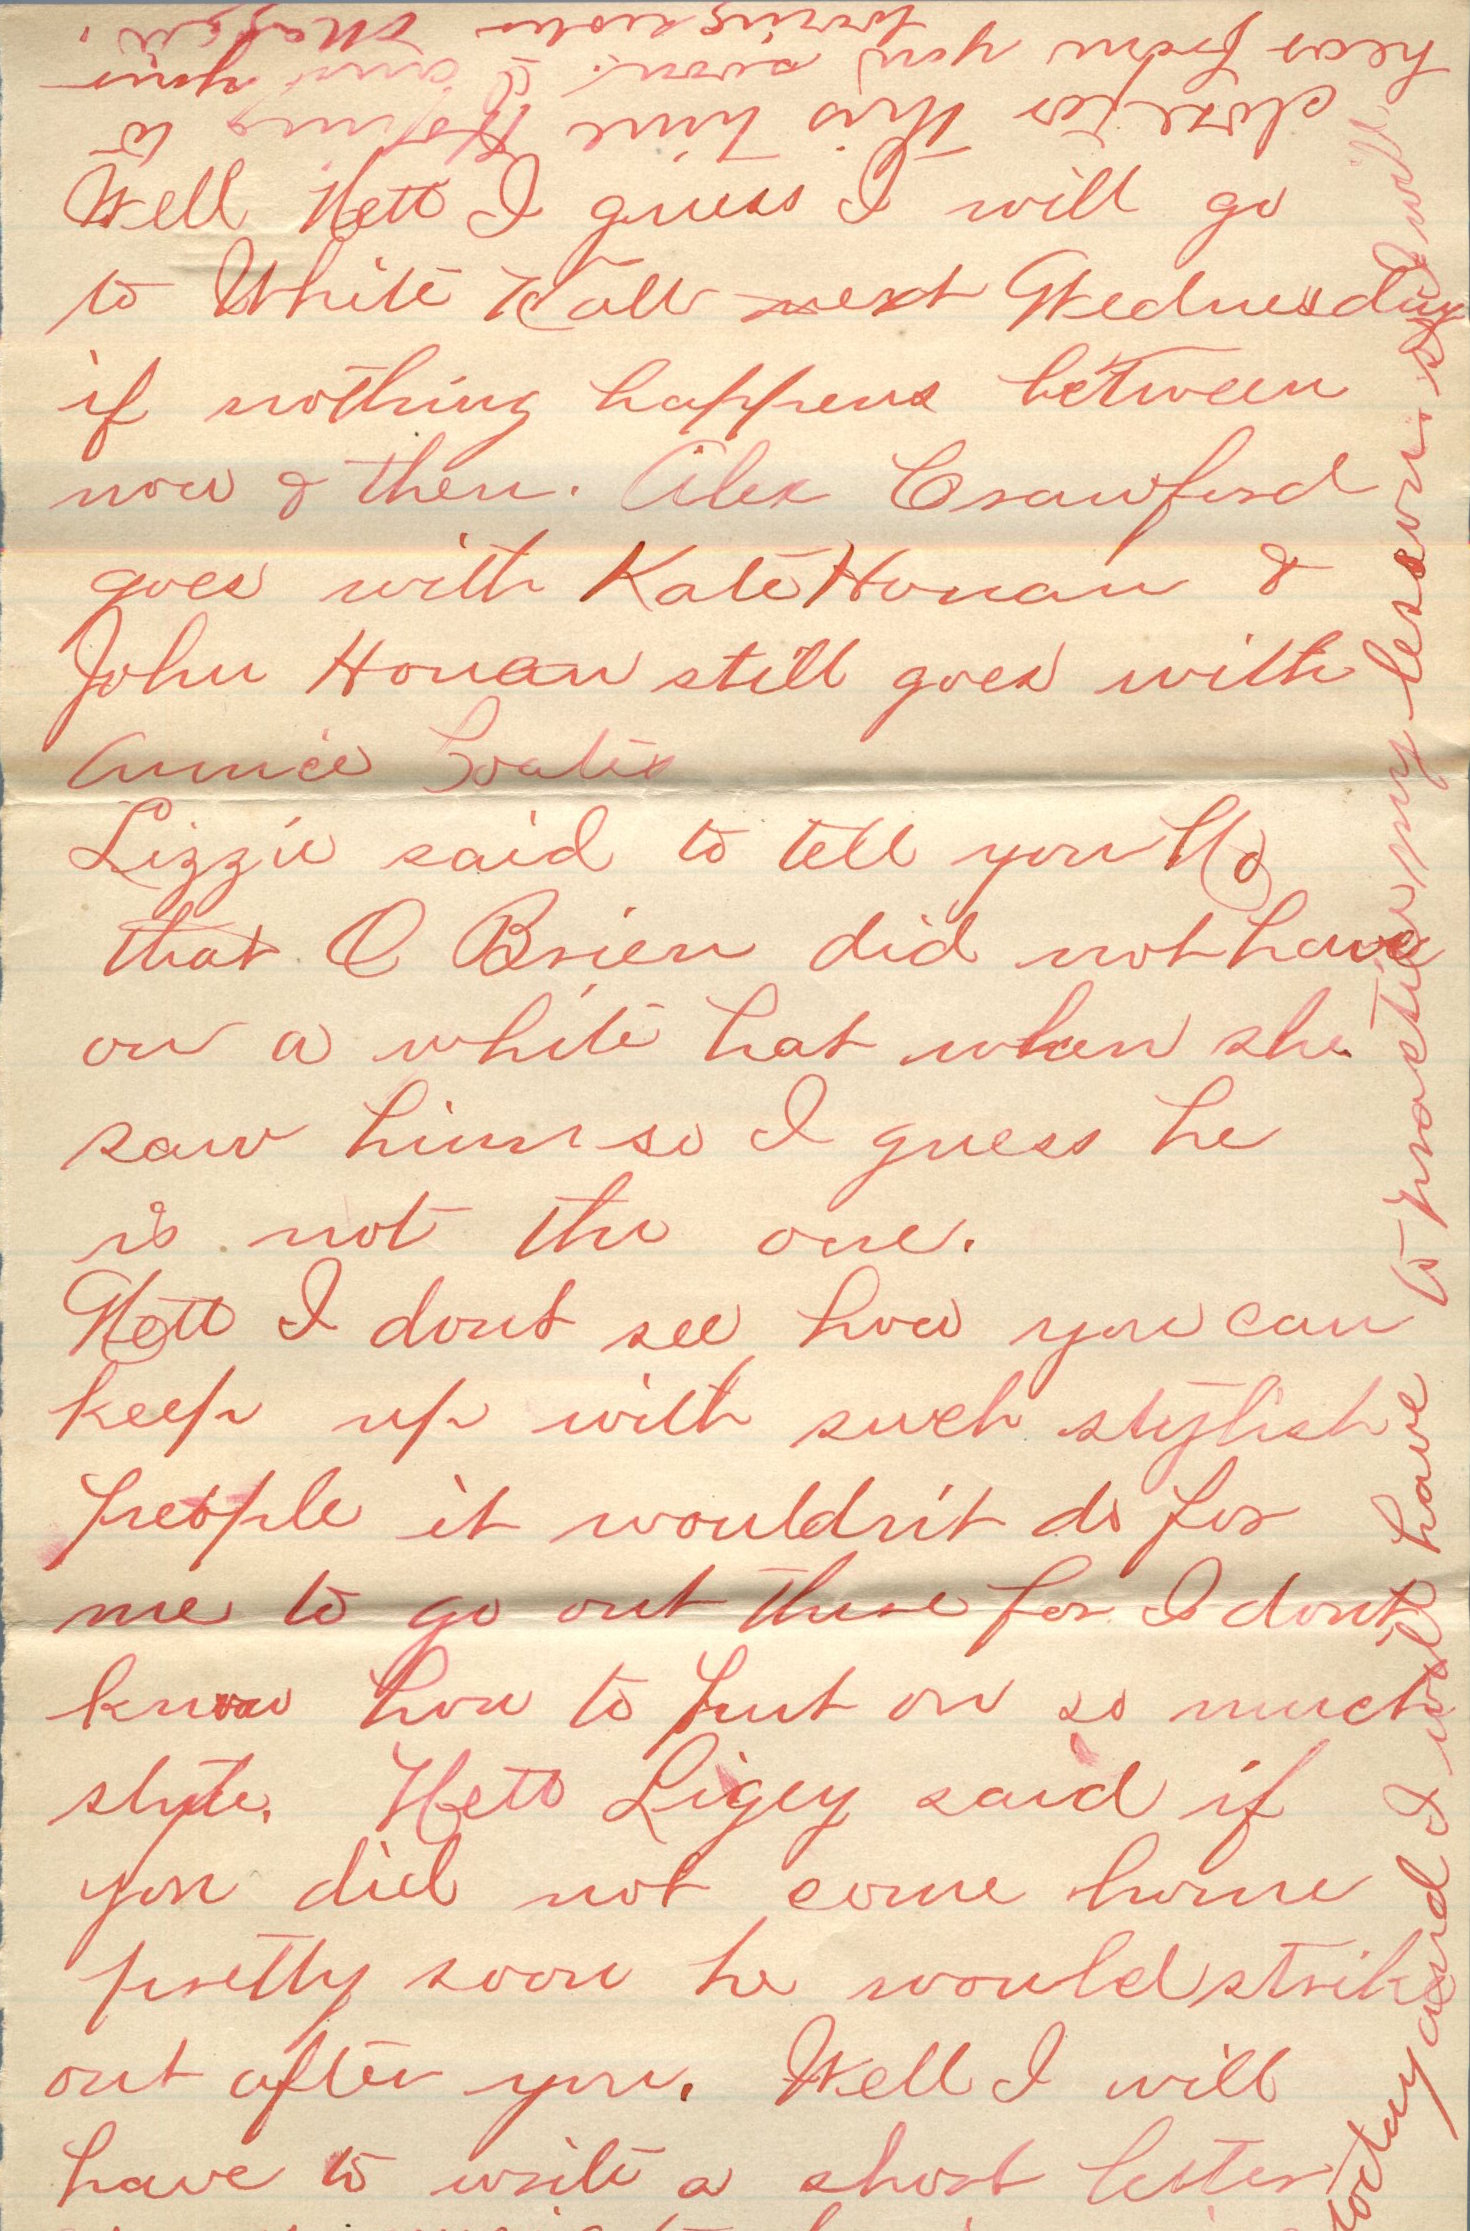 Well Nett I guess I will go
to White Hall next Wednesday
if nothing happens between
now & then. Alex Crawford
goes with Kate Honan &
John Honan still goes with
Annie Coates
Lizzie said to tell you
that O Brien did not have
on a white hat when she
saw him so I guess he
is not the one.
Nett I dont see how you can
keep up with such stylish
people it wouldn't do for
me to go out there for I dont
know how to put on so much
style. Nett Ligey said if
you did not come home
pretty soon he would strike
out after you. Well I will
have to write a short letter
today and I will have to practice my lesson so I will
close for this time Hoping to
hear from you soon. I am your
loving sister Maggie.